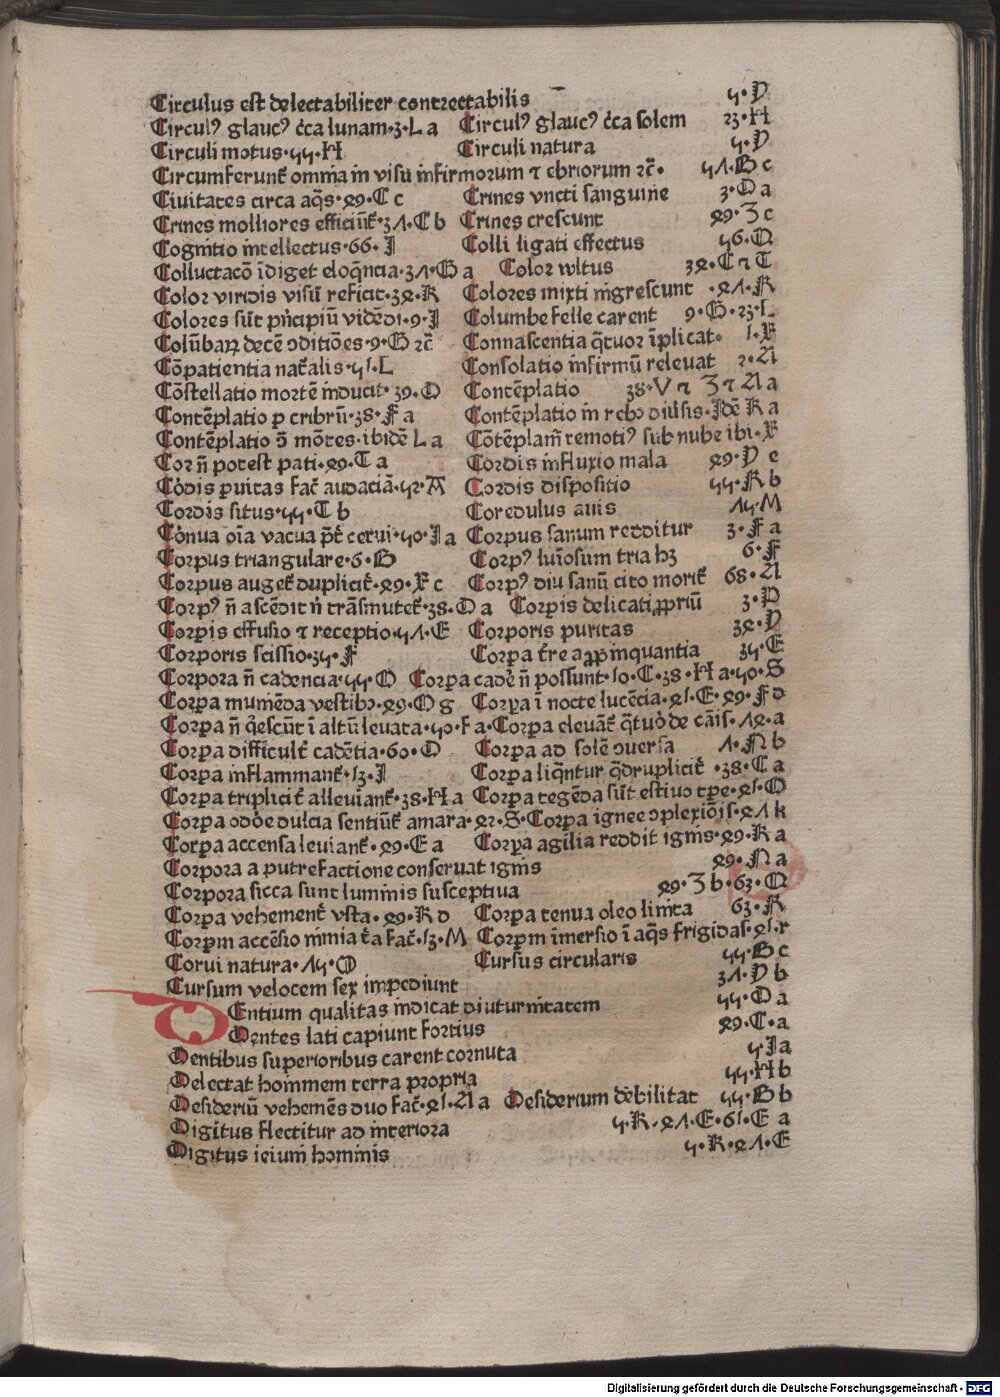 Circulus est delectabiliter contrectabilis ⁊·Y
Circulꝰ glaucꝰ c̄ca lunam·3·L a Circulꝰ glaucꝰ c̄ca solem 23·H
Circuli motus·55·H Circuli natura 5·Y
Circumferunt᷑ omnia in visu infirmorum ⁊ ebriorum ⁊c̄· 51·B c
Ciuitates circa aq̄s·49·C c Crines vncti sanguine 3·O a
Crines molliores efficiūt᷑·31·C b Crines crescunt 49·Z c
Cognitio intellectus·66·I Colli ligati effectus 56·O
Colluctacō īdiget eloq̄ncia·31·G a Color vultus 34·C ⁊ T
Color viridis visū reficit·34·K Colores mixti nigrescunt ·41·K
Colores sūt pn̄cipiū vidēdi·9·I Columbe felle carent 9·G·23·L
Colūbaꝝ decē ꝯditiōes·9·G ⁊c̄ Connascentia qͣtuor īplicat· 1·F
Cōpatientia nat᷑alis·51·L Consolatio infirmū releuat 2·A
Cōstellatio mortē inducit·39·O Contēplatio 38·V ⁊ Z ⁊ A a
Contēplatio ꝑ cribrū·38·F a Contēplatio in rebꝰ diuīsis·Idē K a
Contēplatio ꝯ̄ mōtes·ibidē L a Cōtēplam̄ remotiꝰ sub nube ibi·F
Cor n̄ potest pati·49·T a Cordis influxio mala 49·Y e
Cōdis ꝑuitas fac̄ audaciā·52·A Cordis dispositio 55·K b
Cordis situs·55·C b Coredulus auis 15·M
Corpus sanum redditur 3·F a
Corpus triangulare·6·B Corpꝰ luīosum tria hꝫ 6·F
Corpus auget᷑ duplicit᷑·49·F c Corpꝰ diu sanū cito morit᷑ 68·A
Corpꝰ n̄ ascēdit n̄ trāsmutet᷑·38·O a Corꝑis delicati ꝓpriū 3·P
Corꝑis effusio ⁊ receptio·51·E Corporis puritas 34·Y
Corporis scissio·35·F Corꝑa t᷑re aꝓpinquantia 35·E
Corpora n̄ cadencia·55·O Corꝑa cadē n̄ possunt·10·C·38·H a·50·S
Corꝑa munienda vestibꝰ·49·O g Corꝑa ī nocte lucēcia·41·E·49·F d
Corꝑa n̄ q̄escūt ī altū leuata·50·F a·Corꝑa eleuāt᷑ 14·a
Corꝑa difficult᷑ cadētia·60·O Corꝑa ad solē ꝯuersa 1·N b
Corꝑa inflammant᷑·13·I Corꝑa liqͣntur qͣdruplicit᷑ ·38·C a
Corꝑa triplicit᷑ alleuiant᷑·38·H a Corꝑa tegēda sūt estiuo tꝑe·41·O
Corꝑa dulcia sentiūt᷑ amara·42·S·Corꝑa ignee ꝯplexiōis·41 k
Corꝑa accensa leuiant᷑·49·E a Corꝑa agilia reddit ignis·49·K a
Corpora a putrefactione conseruat ignis 49·N a
Corpora sicca sunt luminis susceptiua 49·Z b·63·O
Corꝑa vehement᷑ vsta·49·K d Corꝑa tenua oleo linita 63·K
Corꝑm accēsio nimia t᷑a fac̄·13·M Corꝑm īmersio ī aq̄s frigidas·41·r
Corui natura·15·O Cursus circularis 55·B c
Cursum velocem sex impediunt 31·Y b
DEntium qualitas indicat diuturnitatem 55·O a
Dentes lati capiunt fortius 49·C·a
Dentibus superioribus carent cornuta 5·I a
Delectat hominem terra propria 55·H b
Desideriū vehemēs duo fac̄·41·A a Desiderium debilitat 55·B b
Digitus flectitur ad interiora 5·K·41·E·61·E a
Digitus hominis 5·K·41·E
Digitalisierung gefördert durch die Deutsche Forschungsgemeinschaft - DFG